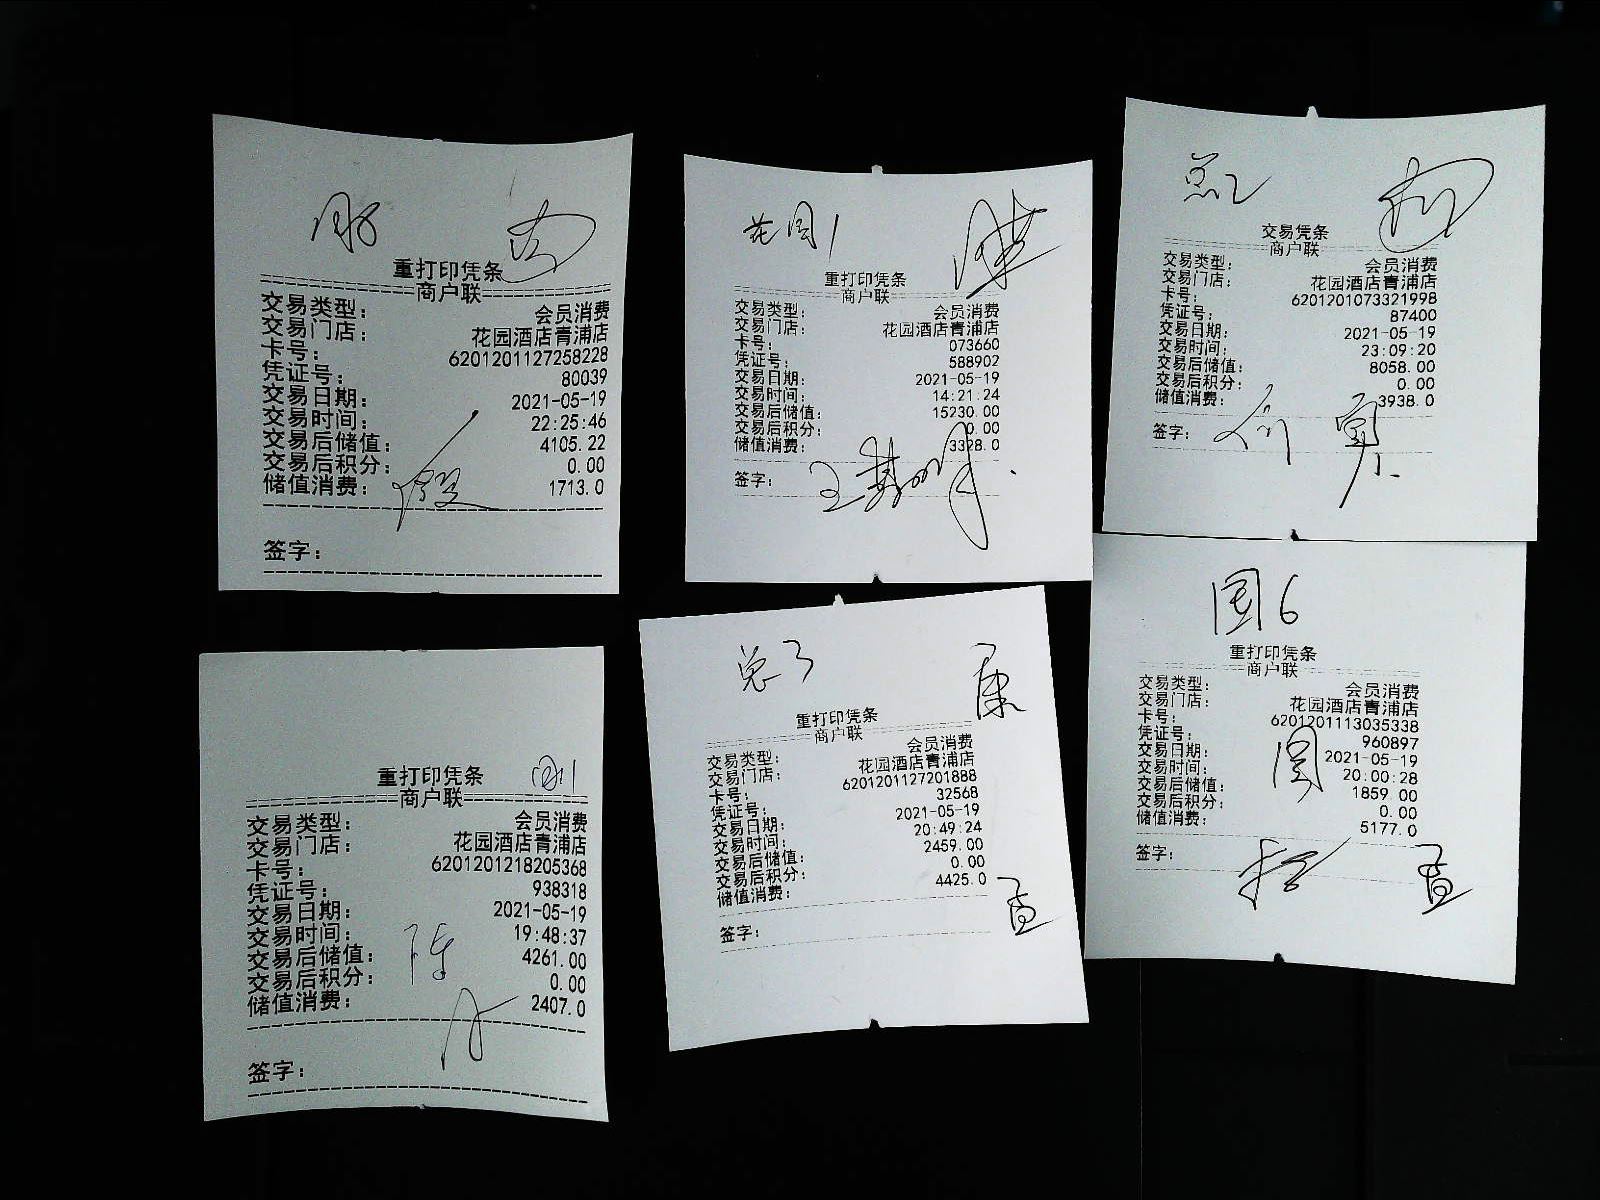 重打印凭条
商户联
交易类型: 会员消费
交易门店: 花园酒店青浦店
卡号: 6201201127258228
凭证号: 80039
交易日期: 2021-05-19
交易时间: 22:25:46
交易后储值: 4105.22
交易后积分: 0.00
储值消费: 1713.0
签字:
花园1
重打印凭条
商户联
交易类型: 会员消费
交易门店: 花园酒店青浦店
卡号: 073660
凭证号: 588902
交易日期: 2021-05-19
交易时间: 14:21:24
交易后储值: 15230.00
交易后积分: 0.00
储值消费: 3328.0
签字:
总2
交易凭条
商户联
交易类型: 会员消费
交易门店: 花园酒店青浦店
卡号: 6201201073321998
凭证号: 87400
交易日期: 2021-05-19
交易时间: 23:09:20
交易后储值: 8058.00
交易后积分: 0.00
储值消费: 3938.0
签字:
重打印凭条
商户联
交易类型: 会员消费
交易门店: 花园酒店青浦店
卡号: 6201201218205368
凭证号: 938318
交易日期: 2021-05-19
交易时间: 19:48:37
交易后储值: 4261.00
交易后积分: 0.00
储值消费: 2407.0
签字:
总3 康
重打印凭条
商户联
交易类型: 会员消费
交易门店: 花园酒店青浦店
卡号: 6201201127201888
凭证号: 32568
交易日期: 2021-05-19
交易时间: 20:49:24
交易后储值: 2459.00
交易后积分: 0.00
储值消费: 4425.0
签字:
国6
重打印凭条
商户联
交易类型: 会员消费
交易门店: 花园酒店青浦店
卡号: 6201201113035338
凭证号: 960897
交易日期: 2021-05-19
交易时间: 20:00:28
交易后储值: 1859.00
交易后积分: 0.00
储值消费: 5177.0
签字: